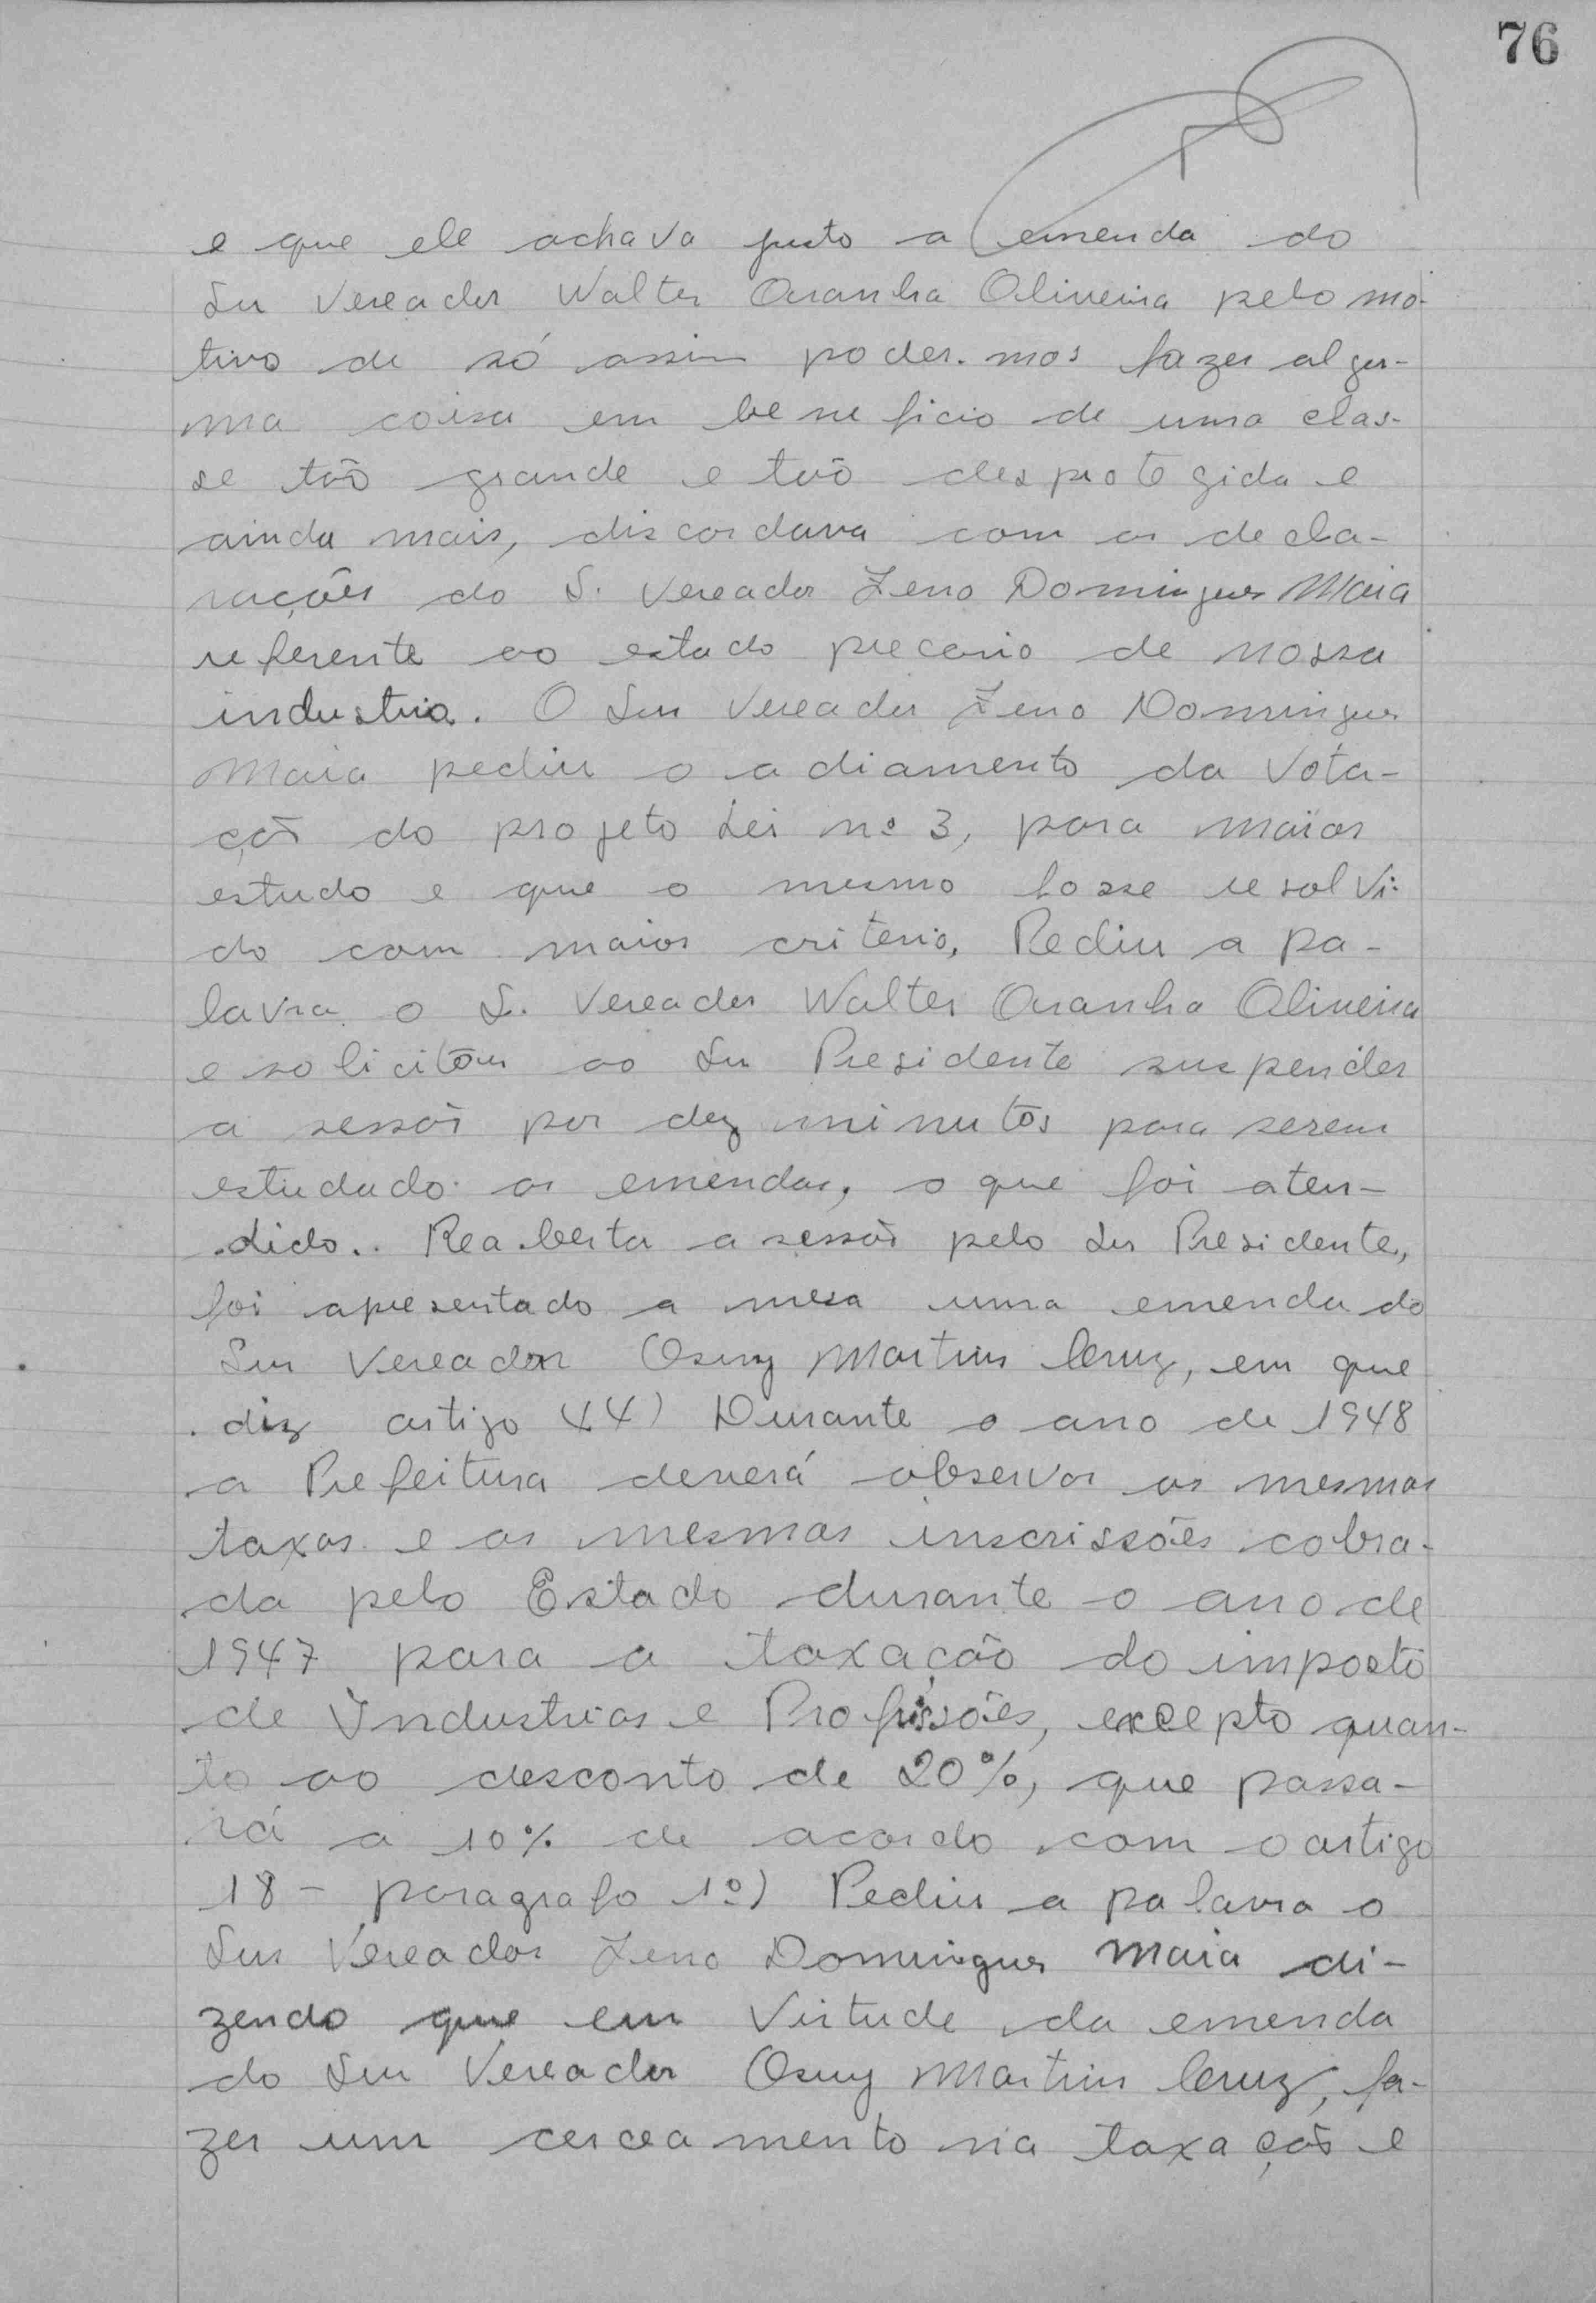 76
e que ele achava justo a emenda do
Snr Vereador Walter Aranha Oliveira pelo mo-
tivo de só assim poder-mos fazer algu-
ma coisa em beneficio de uma clas-
se tão grande e tão desprotegida e
ainda mais, discordava com as decla-
rações do S. Vereador Zeno Domingues Maia
referente ao estado precario de nossa
industria. O Snr Vereador Zeno Domingues
Maia pediu o adiamento da vota-
ção do projeto Lei nº 3, para maior
estudo e que o mesmo fosse resolvi-
do com maior criterio, Pediu a pa-
lavra o S. Vereador Walter Aranha Oliveira
e solicitou ao Snr Presidente suspender
a sessão por dez minutos para serem
estudado as emendas, o que foi aten-
dido.. Reaberta a sessão pelo Snr Presidente,
foi apresentado a mesa uma emenda do
Snr Vereador Osuy Martins Cruz, em que
diz artigo 44) Durante o ano de 1948
a Prefeitura deverá observar as mesmas
taxas e as mesmas inscrissões cobra-
da pelo Estado durante o ano de
1947 para a taxação do imposto
de Industrias e Profissões, excepto quan-
to ao desconto de 20%, que passa-
rá a 10% de acordo com o artigo
18 - paragrafo 1º) Pediu a palavra o
Snr Vereador Zeno Domingues Maia di-
zendo que em virtude da emenda
do Snr Vereador Osuy Martins Cruz, fa-
zer um cerceamento na taxação e